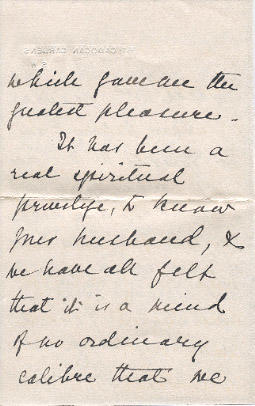 CADOGAN GARDENS
which gave me the
greatest pleasure.
It has been a
real spiritual
privilege, to know
your husband, &
we have all felt
that it is a mind
of no ordinary
calibre that we